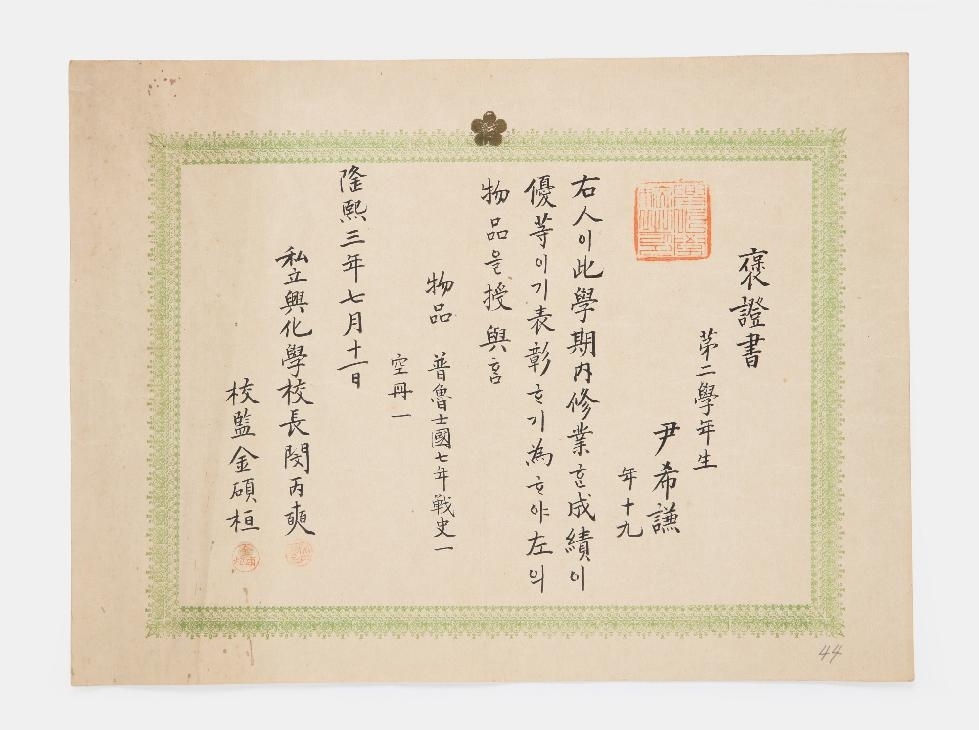 褒證書
第二學年生
尹希謙
年十九
右人이此學期內修業ᄒᆞᆫ成績이
優等이기表彰ᄒᆞ기為ᄒᆞ야左의
物品을授與ᄒᆞᆷ
物品 普魯士國七年戰史一
空冊一
隆熙三年七月十一日
私立興化學校長閔丙奭
校監金碩桓
44